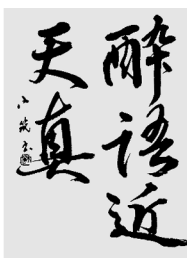 醉語近
天真
小筑書